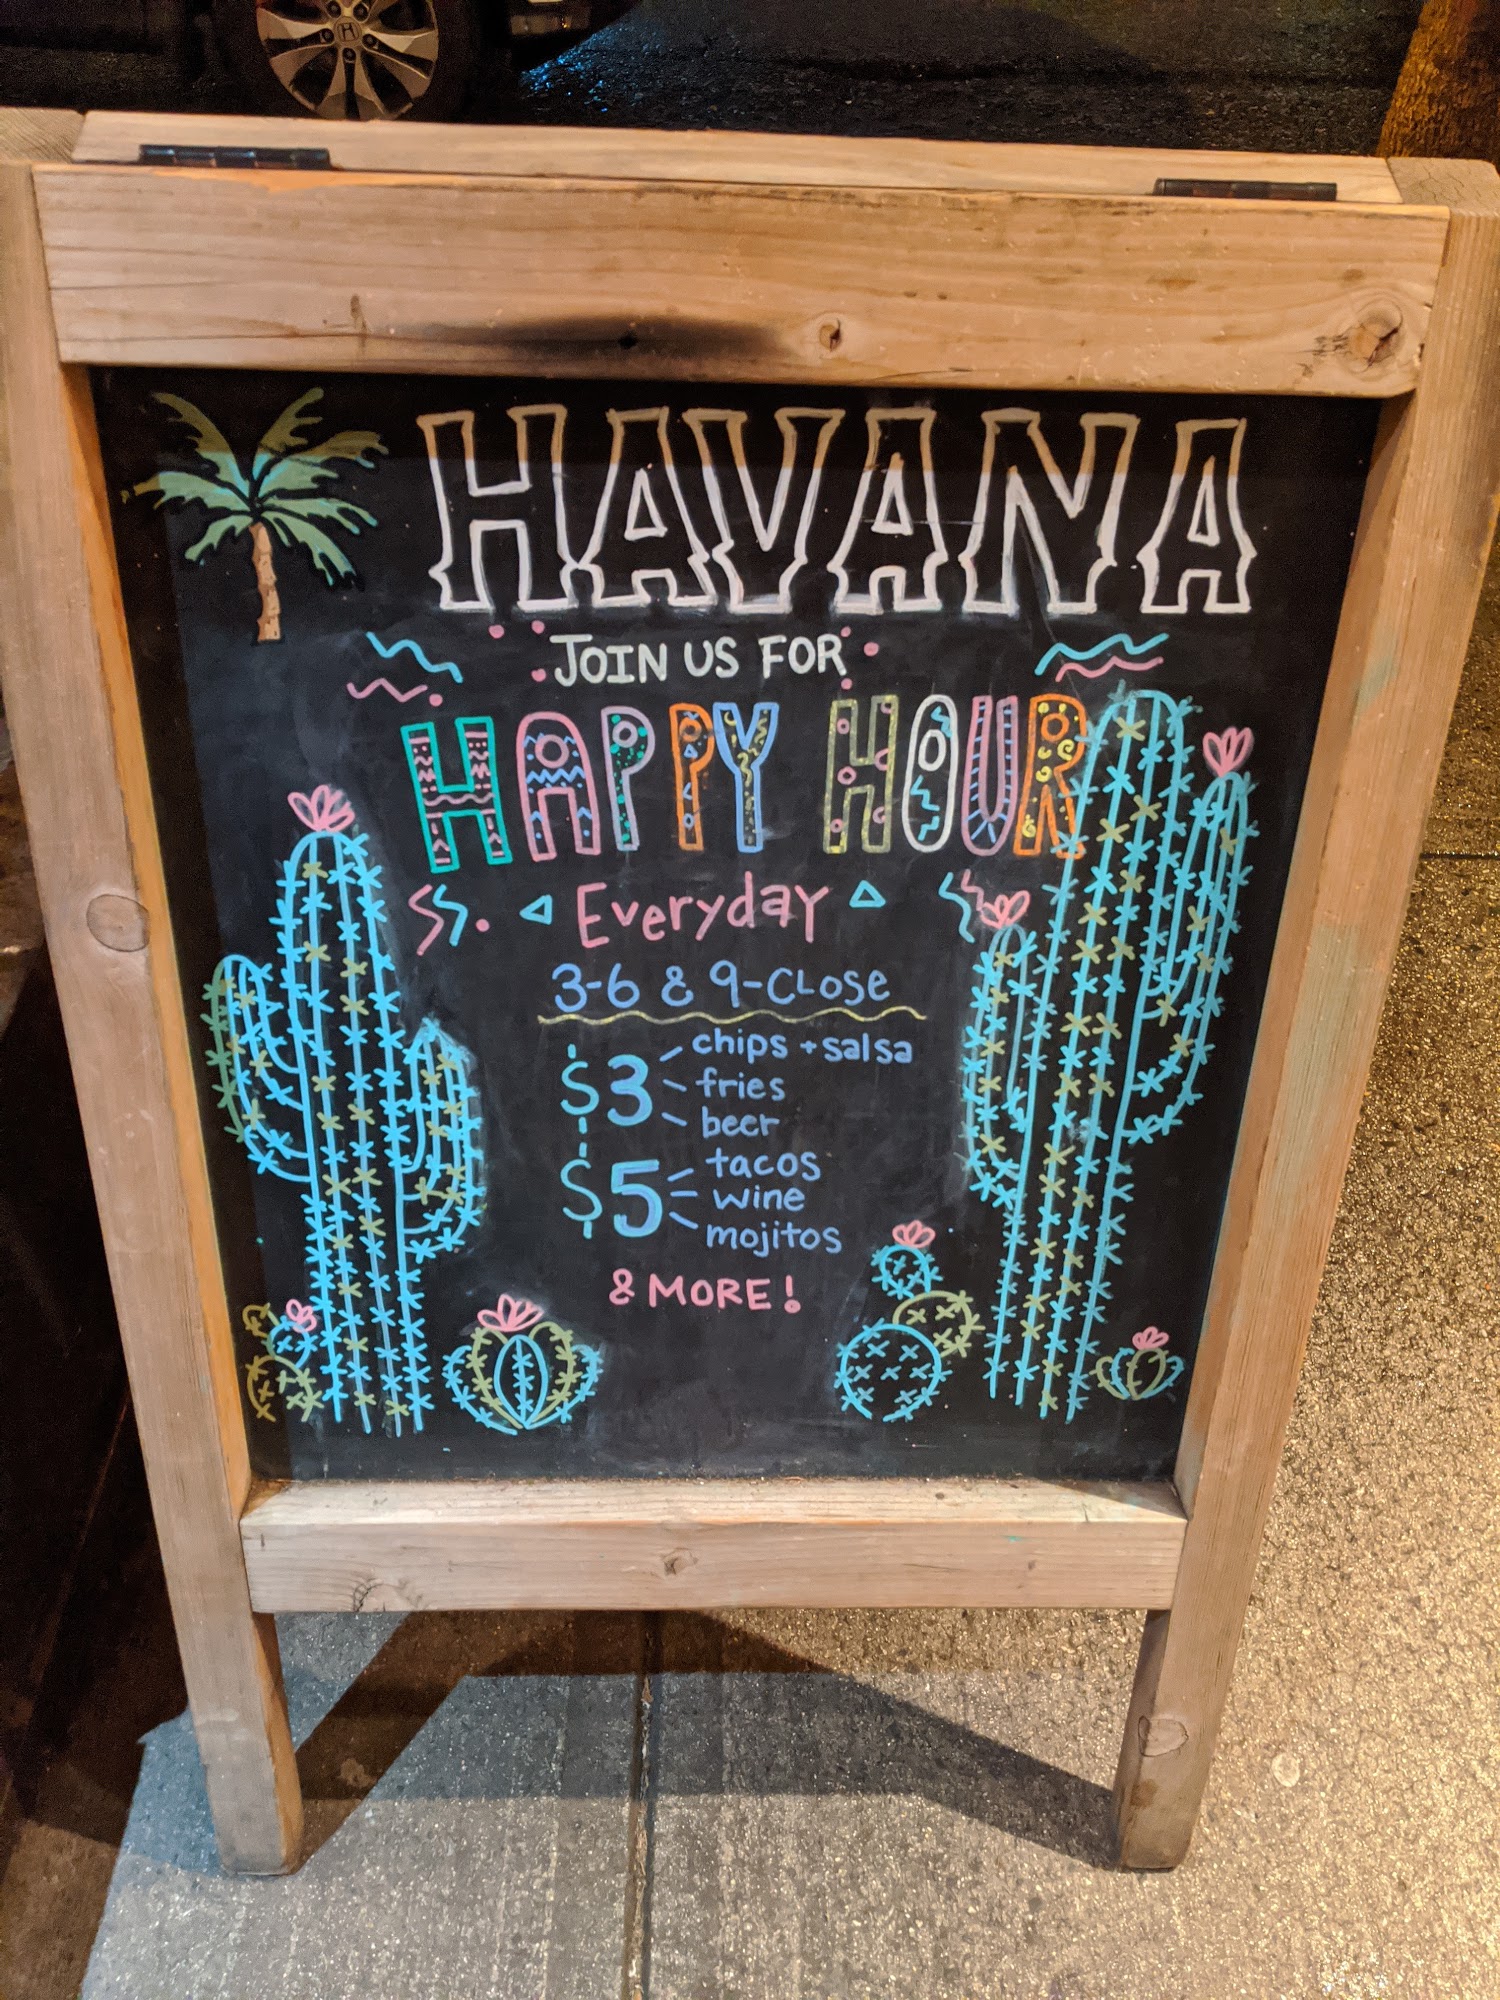 HAVANA
JOIN US FOR
HAPPY HOUR
Everyday
3-6 & 9-CLOSE
$3 chips + salsa
fries
beer
$5 tacos
wine
mojitos
& MORE!